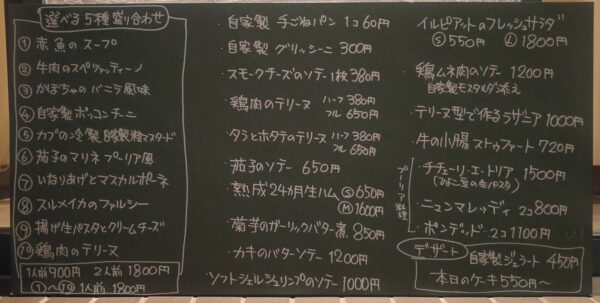 選べる 5種盛り合わせ
① 赤魚のスープ
② 牛肉のスペツァティーノ
③ かぼちゃのバニラ風味
④ 自家製ボッコンチーニ
⑤ カブの冷製 自家製粒マスタード
⑥ 茄子のマリネ プーリア風
⑦ いなりあげとマスカルポーネ
⑧ スルメイカのファルシー
⑨ 揚げ生パスタとクリームチーズ
⑩ 鶏肉のテリーヌ
1人前900円 2人前 1800円
①〜⑩ 1人前 1800円
・自家製 手ごねパン 1コ60円
・自家製 グリッシーニ 300円
・スモークチーズのソテー 1枚380円
・鶏肉のテリーヌ ハーフ 380円
フル 650円
・タラとホタテのテリーヌ ハーフ 380円
フル 650円
・茄子のソテー 650円
・熟成24か月生ハム Ⓢ650円
Ⓜ1600円
・菊芋のガーリックバター煮 850円
・カキのバターソテー 1200円
・ソフトシェルシュリンプのソテー 1000円
イルピアットのフレッシュサラダ
Ⓢ550円 Ⓛ1800円
・鶏ムネ肉のソテー 1200円
自家製モスタルダ添え
・テリーヌ型で作るラザニア 1000円
・牛の小腸 ストゥファート 720円
プーリア料理
・チチェーリ・エ・トリア 1500円
(ひよこ豆の生パスタ)
・ニュンマレッディ 2コ 800円
・ボンデッド 2コ1100円
デザート
自家製ジェラート 450円
本日のケーキ 550円〜